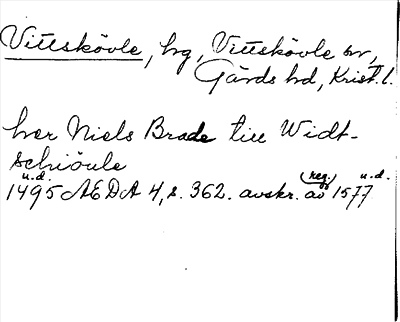 Vittskövle, hg, Vittskövle sn,
Gärds hd, Krist. l.
her Niels Brade till Widt-
schiöule
u.d.
1495 AEDA 4, s. 362. avskr. av (reg.) 1577 u.d.